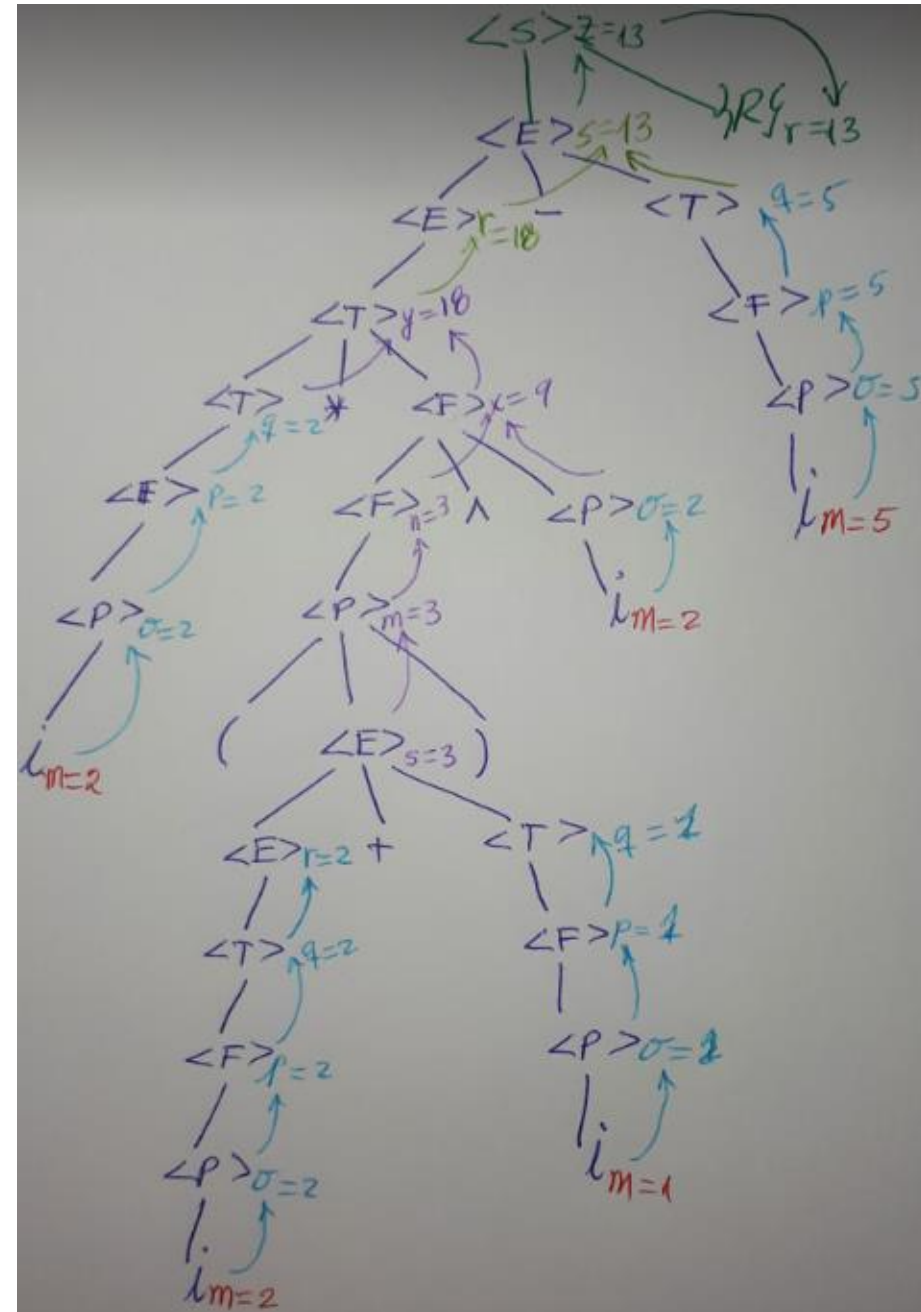 <S> z=13
<E> s=13 {R} r=13
<E> r=18 - <T> q=5
<T> y=18 <F> p=5
<T> q=2 * <F> x=9 <P> σ=5
<F> p=2 <F> n=3 ^ <P> σ=2 i m=5
<P> σ=2 <P> m=3 i m=2
i m=2 ( <E> s=3 )
<E> r=2 + <T> q=1
<T> q=2 <F> p=1
<F> p=2 <P> σ=1
<P> σ=2 i m=1
i m=2